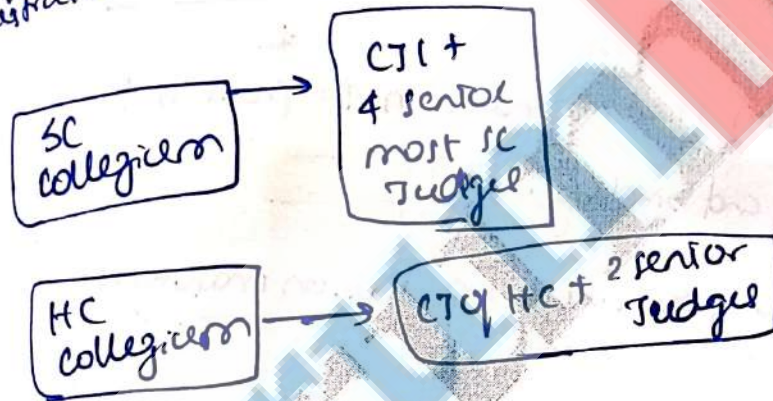 SC
collegium
CJI +
4 senior
most SC
Judges
HC
collegium
CJ of HC + 2 senior
Judges